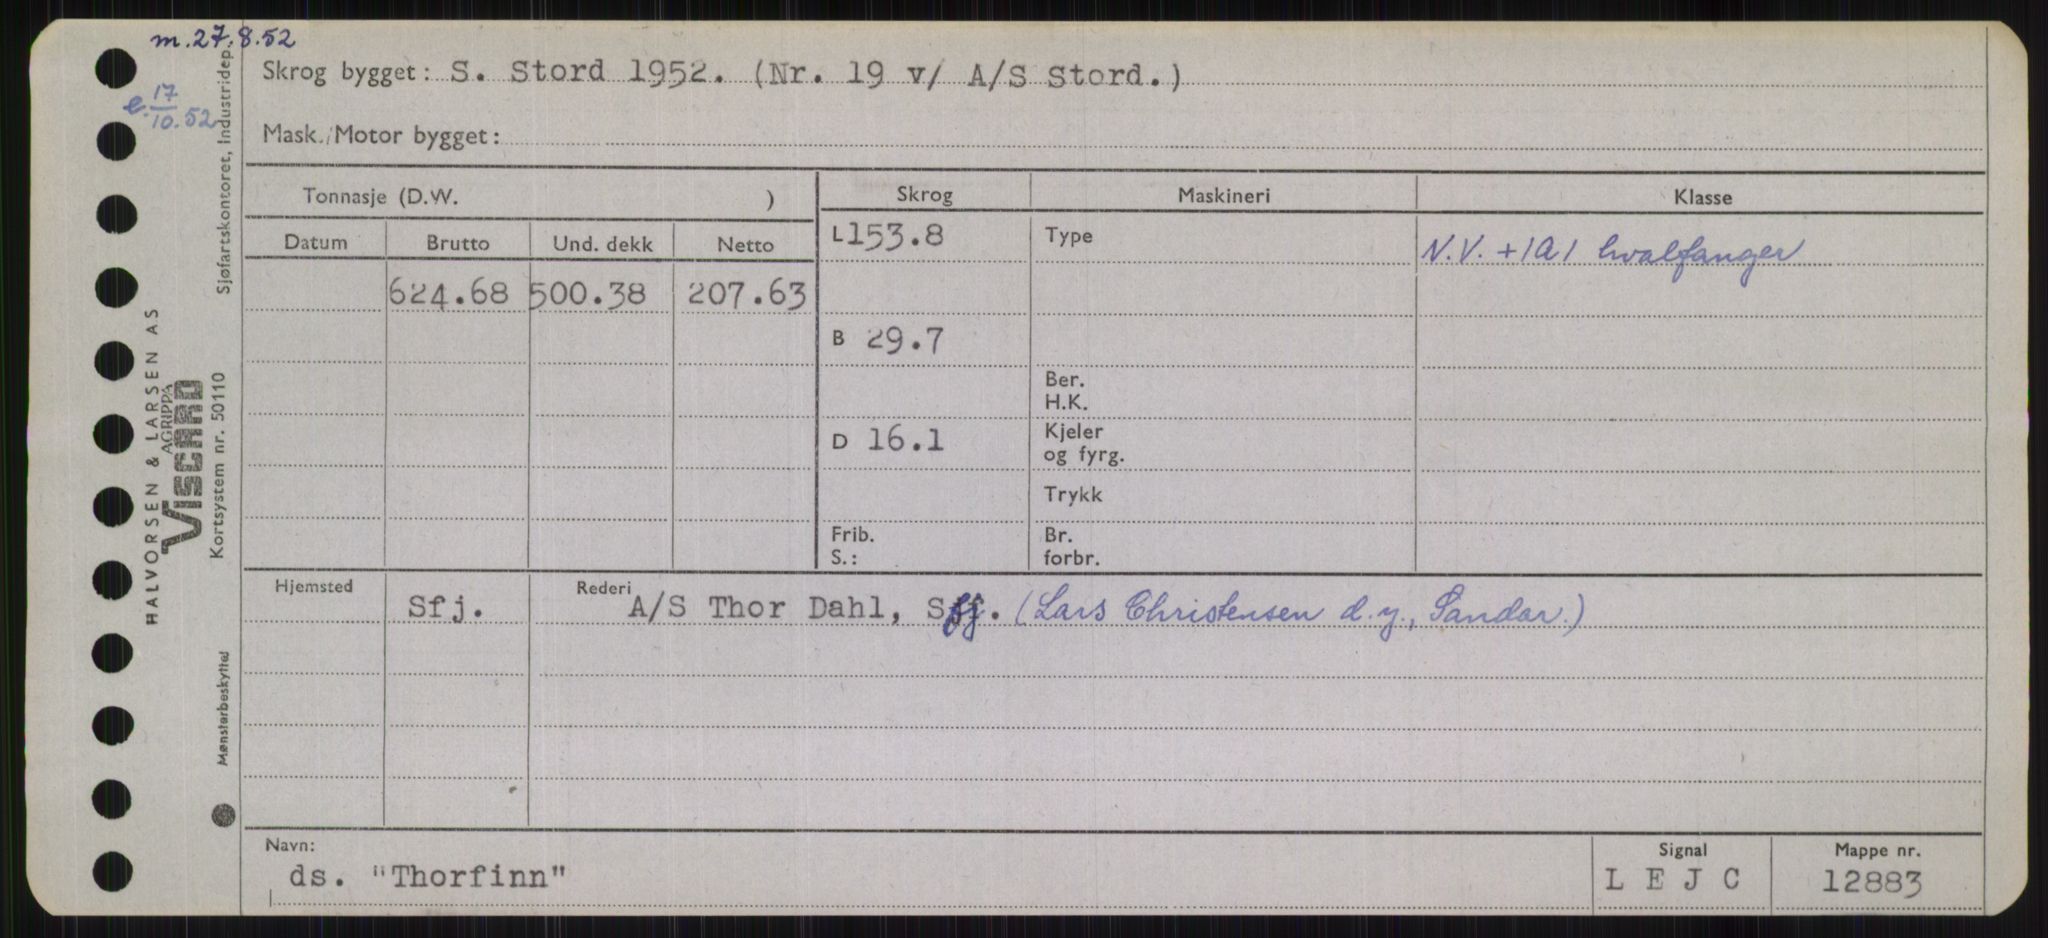 m.27.8.52
e. 17/10.52
Skrog bygget: S. Stord 1952. (Nr. 19 v/ A/S Stord.)
Mask./Motor bygget:
Tonnasje (D.W. )
Skrog Maskineri Klasse
Datum Brutto Und. dekk Netto
L 153.8 Type N.V. +1A1 hvalfanger
624.68 500.38 207.63
B 29.7
Ber.
H.K.
D 16.1 Kjeler
og fyrg.
Trykk
Frib. Br.
S.: forbr.
Hjemsted Rederi
Sfj. A/S Thor Dahl, Sfj. (Lars Christensen d.y., Sandar.)
Navn: Signal Mappe nr.
ds. "Thorfinn" L E J C 12883
HALVORSEN & LARSEN AS
AGRIPPA
VISCARD
Kortsystem nr. 50110
Sjøfartskontoret, Industridep.
Mønsterbeskyttet